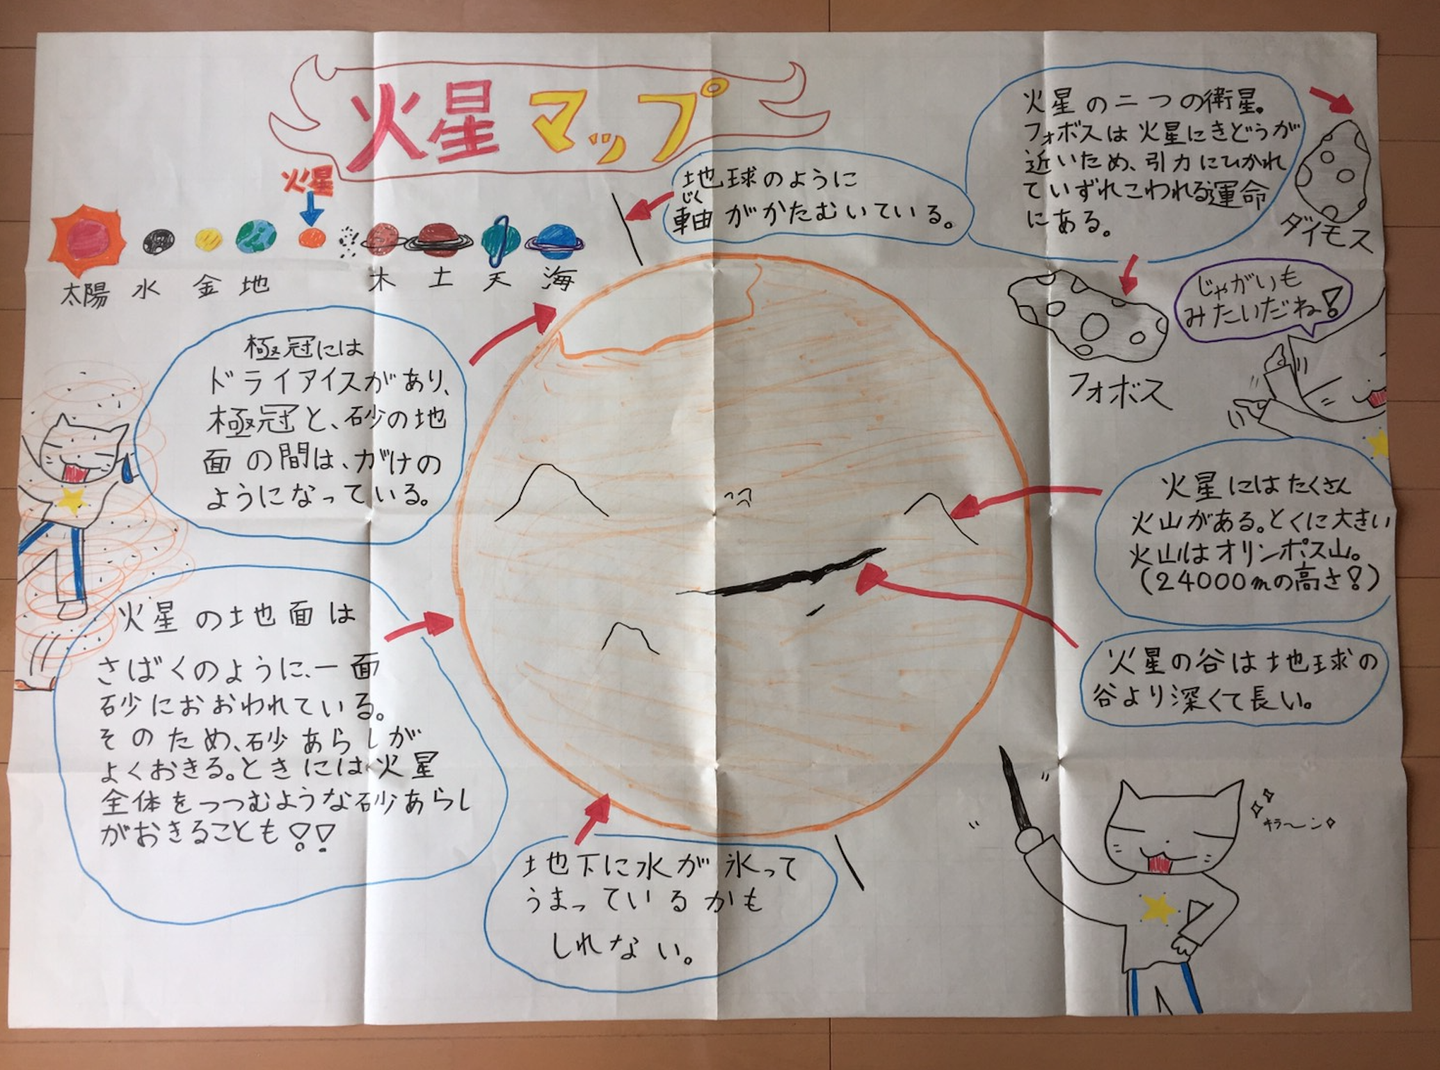 火星マップ
火星
太陽 水 金 地 木 土 天 海
地球のように
軸がかたむいている。
じく
火星の二つの衛星。
フォボスは火星にきどうが
近いため、引力にひかれ
ていずれこわれる運命
にある。
ダイモス
フォボス
じゃがいも
みたいだね!
極冠には
ドライアイスがあり、
極冠と、砂の地
面の間は、がけの
ようになっている。
火星にはたくさん
火山がある。とくに大きい
火山はオリンポス山。
(24000mの高さ!)
火星の谷は地球の
谷より深くて長い。
火星の地面は
さばくのように、一面
砂におおわれている。
そのため、砂あらしが
よくおきる。ときには火星
全体をつつむような砂あらし
がおきることも!!
地下に水が氷って
うまっているかも
しれない。
キラーン